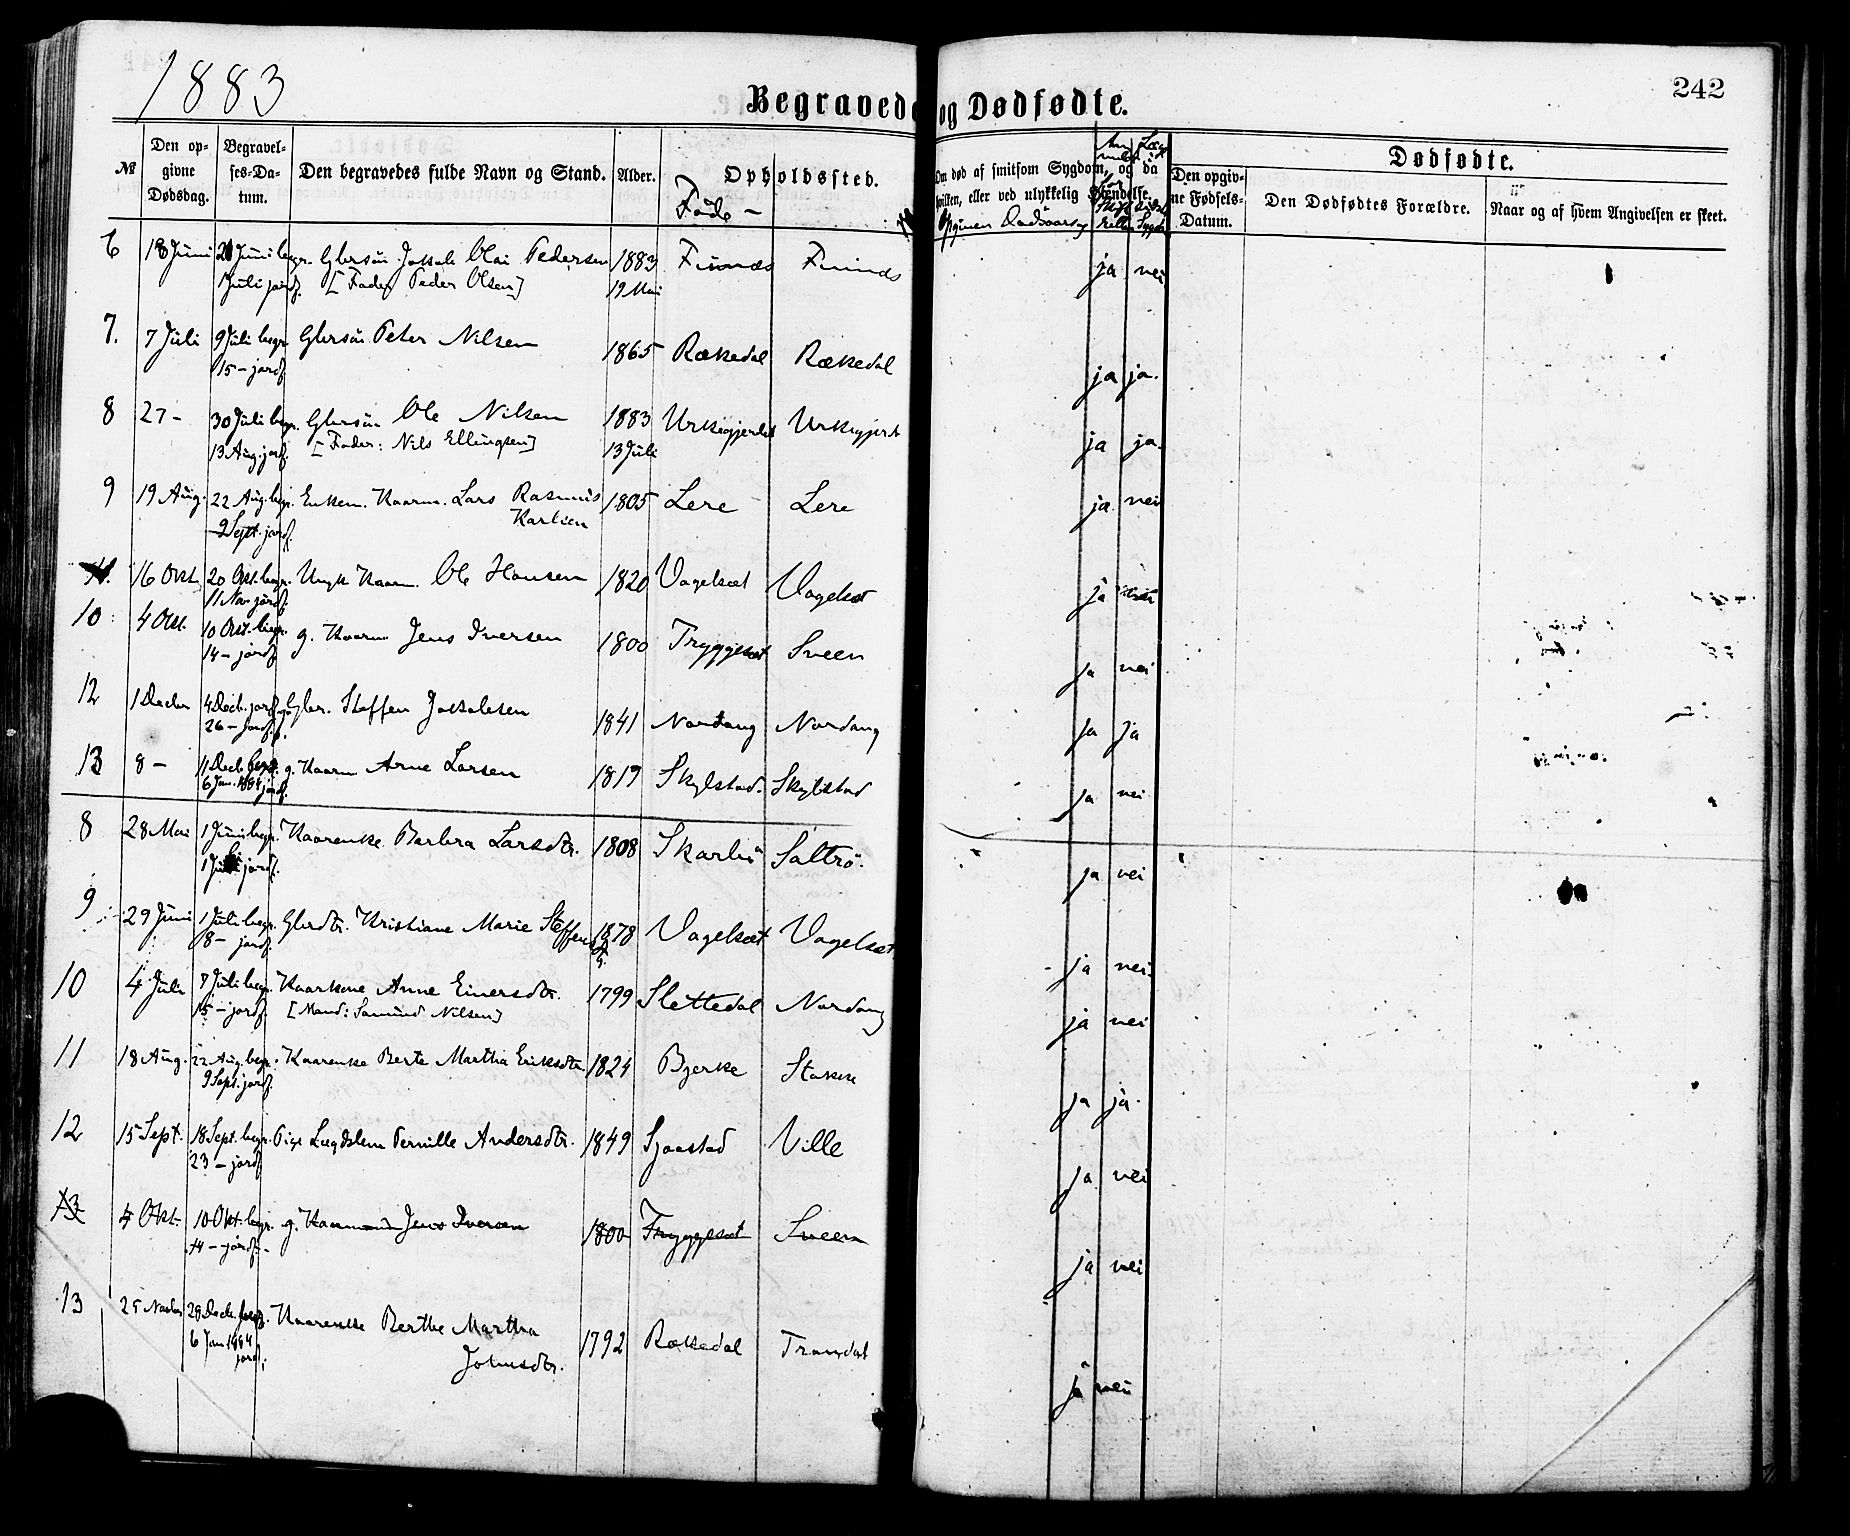 1883
242
Begravede og Dødfødte.
№ Den opgivne Dødsdag. Begravelses-Datum. Den begravedes fulde Navn og Stand. Alder. Opholdssted. Om død af smitsom Sygdom, og da hvilken, eller ved ulykkelig Hændelse.
Føde –
Opgiven Dødsaarsag
Dødfødte.
Den opgivne Fødsels-Datum. Den Dødfødtes Forældre. Naar og af hvem Angivelsen er skeet.
6 18 Juni 21 Juni begr. Gbrsøn Jakob Olai Pedersen 1883 Finnæs Finnæs ja nei
1 Juli jordf. [Fader Peder Olsen] 19 Mai
7. 7 Juli 9 Juli begr. Gbrsøn Peter Nilsen 1865 Rækedal Rækedal ja ja.
15 – jordf.
8 27 – 30 Juli begr. Gbrsøn Ole Nilsen 1883 Urkegjerdet Urkegjerdt ja ja.
13 Aug. jordf. [Fader: Nils Ellingsen] 13 Juli
9 19 Aug. 22 Aug. begr. Enkem. Kaarm. Lars Rasmus 1805 Lere Lere ja nei
9 Sept. jordf. Karlsen
11. 16 Okt. 20 Okt. begr. Ungk. Kaarm. Ole Hansen 1820 Vagelsæt Vagelsæt ja nei
11 Nov. jordf.
10 4 Okt. 10 Okt. begr. g. Kaarm Jens Iversen 1800 Tryggesæt Sveen ja nei
14 – jordf.
12 1 Decbr 4 Decb. jordf. Gbr. Steffen Jakobsen 1841 Nordang Nordang ja ja
26 – jordf.
13 8 – 11 Decb. begr. g. Kaarm Arne Larsen 1819 Skylstad. Skylstad ja nei
6 Jan. 1884 jordf.
8 28 Mai 1 Juni begr. Kaarenke Barbra Larsdtr. 1808 Skarbø Saltrø. ja nei
1 Juli jordf.
9 29 Juni 1 Juli begr. Gbrdtr. Kristiane Marie Steffensdtr. 1878 Vagelsæt Vagelsæt ja nei.
8 – jordf.
10 4 Juli 7 Juli begr. Kaarkone Anne Einersdtr. 1799 Slettedal Nordang ja nei
15 – jordf. [Mand: Samund Nilsen]
11 18 Aug. 22 Aug. begr. Kaarenke Berte Martha Eriksdtr 1824 Bjerke Stokke ja ja.
9 Sept. jordf.
12 15 Sept. 18 Sept. begr. Pige Lægdslem Pernille Andersdtr. 1849 Sjaastad Ville ja nei
23 – jordf.
13 4 Okt. 10 Okt. begr. g. Kaarmand Jens Iversen 1800 Tryggesæt Sveen ja nei
14 – jordf.
13 25 Novbr 28 Decb. begr. Kaarenke Berthe Martha 1792 Rækedal Trandal ja nei
6 Jan 1884 jordf. Johnsdtr.